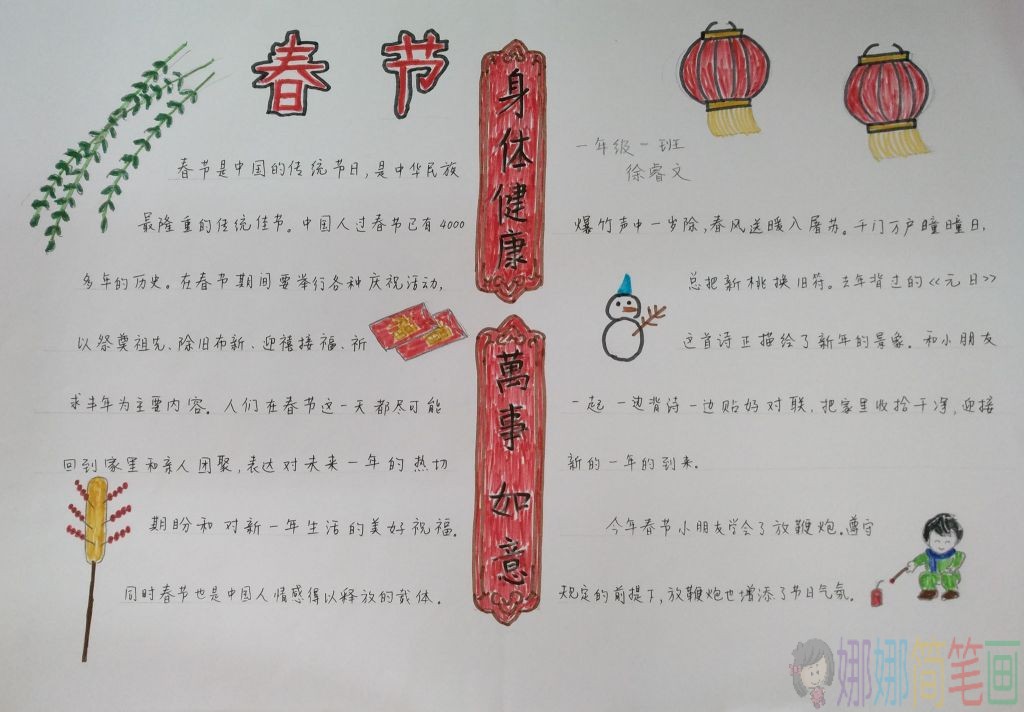 春节
春节是中国的传统节日,是中华民族
最隆重的传统佳节。中国人过春节已有4000
多年的历史。在春节期间要举行各种庆祝活动,
以祭奠祖先、除旧布新、迎禧接福、祈
求丰年为主要内容。人们在春节这一天都尽可能
回到家里和亲人团聚,表达对未来一年的热切
期盼和对新一年生活的美好祝福。
同时春节也是中国人情感得以释放的载体。
身体健康
萬事如意
一年级一班
徐睿文
爆竹声中一岁除,春风送暖入屠苏。千门万户曈曈日,
总把新桃换旧符。去年背过的《元日》
这首诗正描绘了新年的景象。和小朋友
一起一边背诗一边贴好对联,把家里收拾干净,迎接
新的一年的到来。
今年春节小朋友学会了放鞭炮。遵守
规定的前提下,放鞭炮也增添了节日气氛。
娜娜简笔画